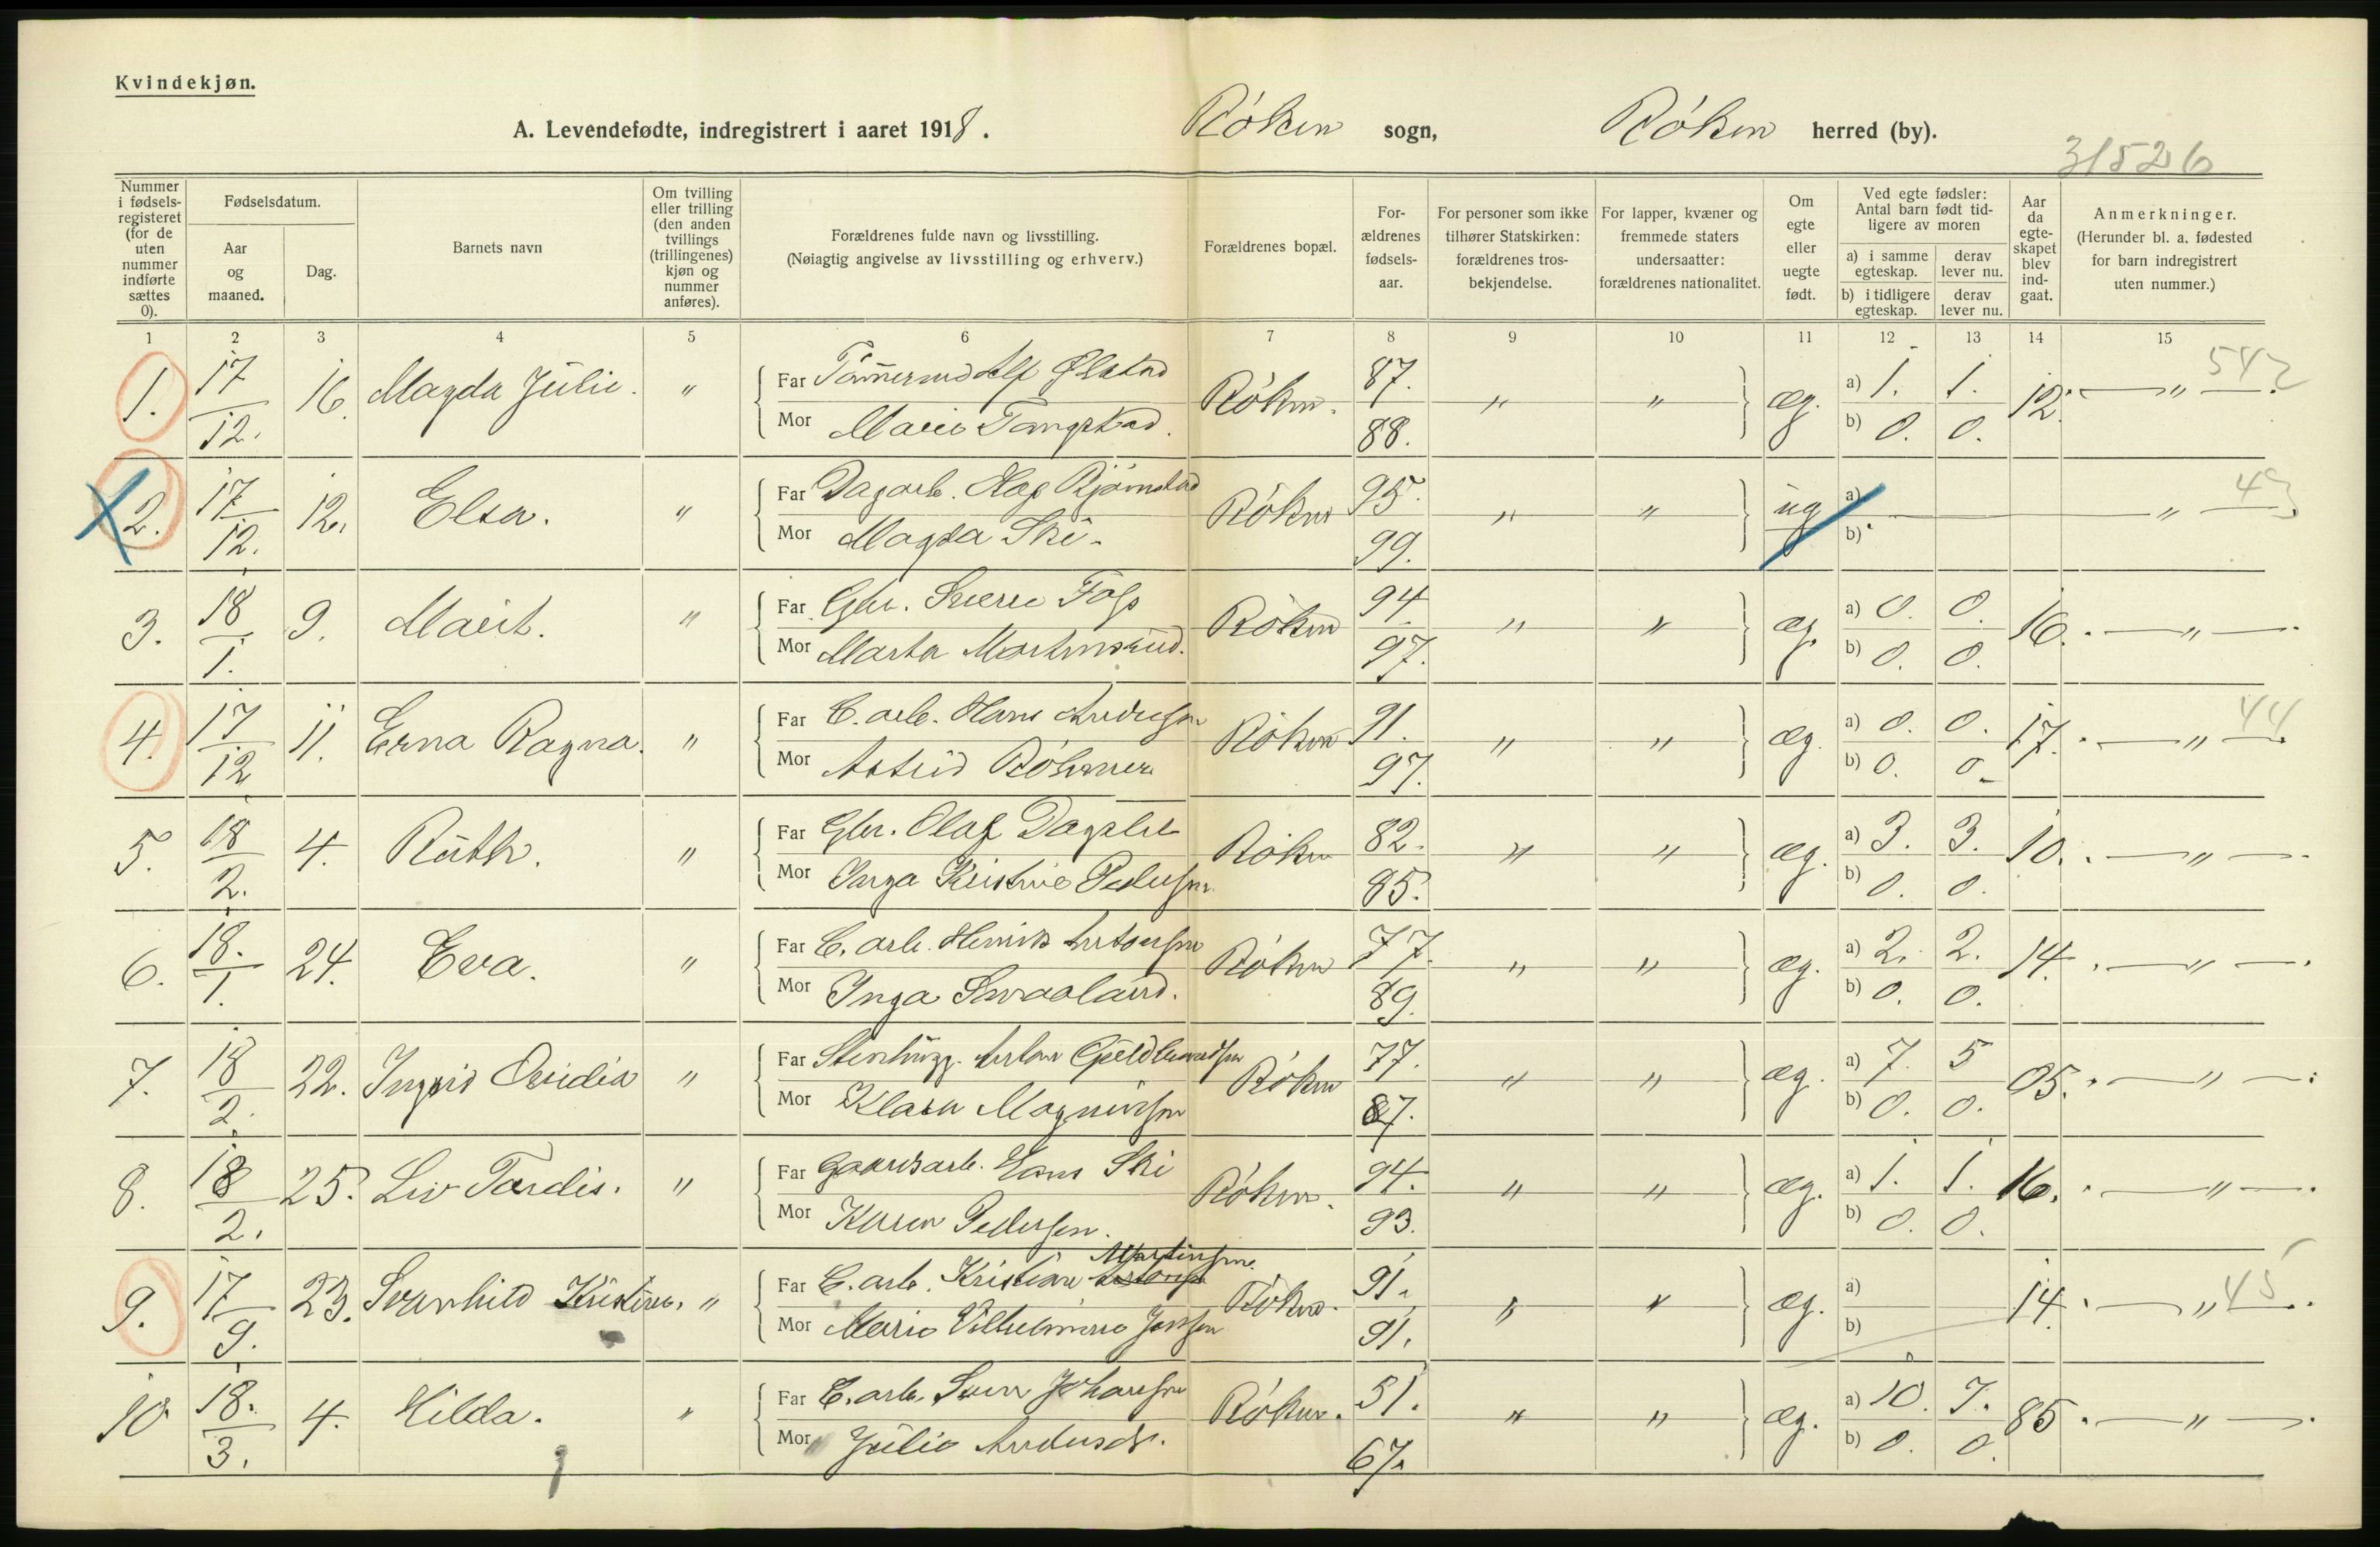 Kvindekjøn.
A. Levendefødte, indregistrert i aaret 1918. Røken sogn, Røken herred (by).
31526
Nummer i fødselsregisteret (for de uten nummer indførte sættes 0).
Fødselsdatum.
Aar og maaned.
Dag.
Barnets navn
Om tvilling eller trilling (den anden tvillings (trillingenes) kjøn og nummer anføres).
Forældrenes fulde navn og livsstilling.
(Nøiagtig angivelse av livsstilling og erhverv.)
Forældrenes bopæl.
Forældrenes fødselsaar.
For personer som ikke tilhører Statskirken: forældrenes trosbekjendelse.
For lapper, kvæner og fremmede staters undersaatter: forældrenes nationalitet.
Om egte eller uegte født.
Ved egte fødsler: Antal barn født tidligere av moren
a) i samme egteskap. derav lever nu.
b) i tidligere egteskap. derav lever nu.
Aar da egteskapet blev indgaat.
Anmerkninger.
(Herunder bl. a. fødested for barn indregistrert uten nummer.)
1 2 3 4 5 6 7 8 9 10 11 12 13 14 15
1. 17/12. 16. Magda Julie. " Far Tømmermd Alf Ølstad Røken. 87. " " æg. a) 1. 1. 12. — " — 542
Mor Marie Tangstad. 88. b) 0. 0.
2. 17/12. 12. Elsa. " Far Dagarb. Olaf Bjørnstad Røken 95. " " ug a) — " — 43
Mor Magda Ski. 99. b)
3. 18/1. 9. Marit. " Far Gbr. Sverre Follo Røken 94. " " æg. a) 0. 0. 16. — " —
Mor Marta Martinsrud. 97. b) 0. 0.
4. 17/12 11. Erna Ragna. " Far C. arb. Hans Andersen Røken 91. " " æg. a) 0. 0. 17. — " — 44
Mor Astrid 97. b) 0. 0.
5. 18/2. 4. Ruth. " Far Gbr. Olaf Dagslet Røken 82. " " æg. a) 3. 3. 10. — " —
Mor Inga Kristine Pedersen. 85. b) 0. 0.
6. 18./1. 24. Eva. " Far C. arb. Henrik Antonsen Røken 77. " " æg. a) 2. 2. 14. — " —
Mor Inga Svraaland. 89. b) 0. 0.
7. 18/2. 22. Ingrid Ovidia " Far Stenhugg. Anton Guldbrandsen Røken 77. " " æg. a) 7. 5 05. — " —
Mor Klara Magnussen 87. b) 0. 0.
8. 18/2. 25. Liv Tordis. " Far Gaardsarb. Hans Ski Røken. 94. " " æg. a) 1. 1. 16. — " —
Mor Karen Pedersen. 93. b) 0. 0.
9. 17/9. 23. Svanhild Kristine. " Far C. arb. Kristian Antonsen Martinsen. Røken. 91. " " æg. a) 14. — " — 45
Mor Marie Vilhelmine Jensen 91. b)
10 18./3. 4. Hilda. " Far C. arb. Johansen Røken. 51. " " æg. a) 10. 7. 85 — " —
Mor Julie Andersdt. 67. b) 0. 0.